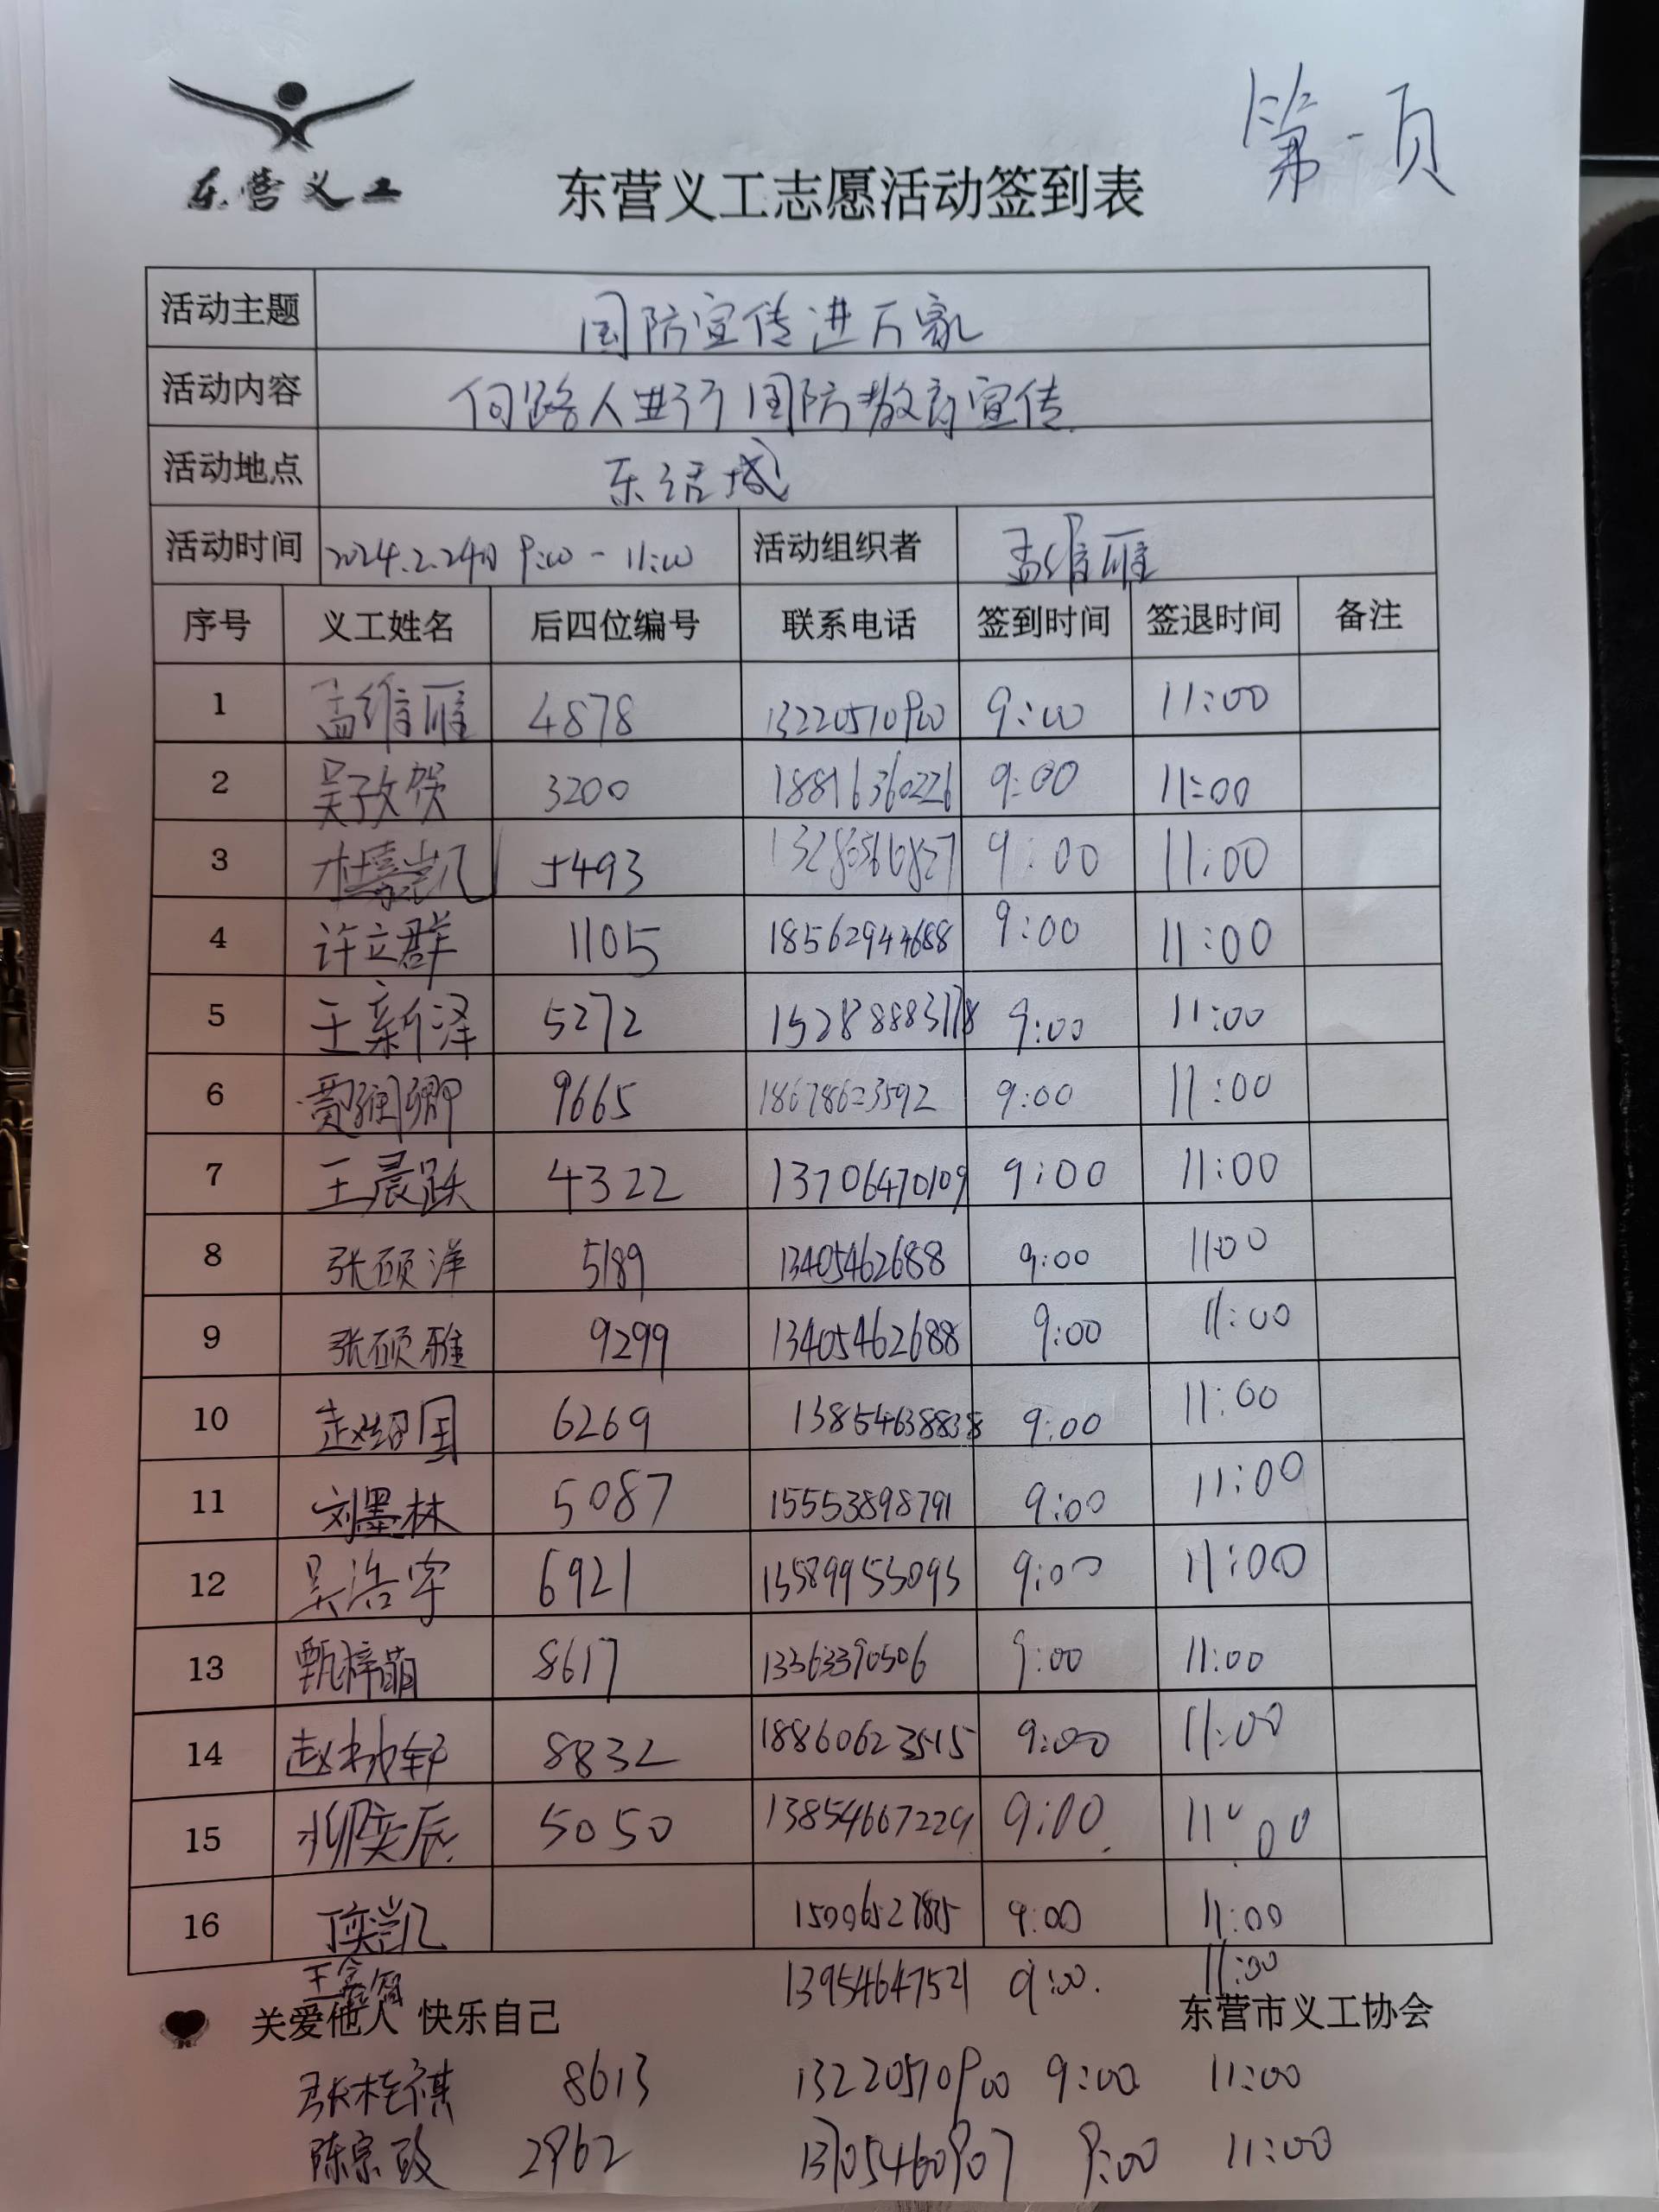 第一页
东营义工
东营义工志愿活动签到表
活动主题 国防宣传进万家
活动内容 向路人进行国防教育宣传
活动地点 东活城
活动时间 2024.2.24日 9:00-11:00 活动组织者 孟维雁
序号 义工姓名 后四位编号 联系电话 签到时间 签退时间 备注
1 孟维雁 4878 13220510900 9:00 11:00
2 吴孜贺 3200 18816360226 9:00 11:00
3 杜嘉凯 5493 9:00 11:00
4 许立群 1105 18562944688 9:00 11:00
5 王新泽 5272 15288883178 9:00 11:00
6 9665 18678623592 9:00 11:00
7 王晨跃 4322 13706470109 9:00 11:00
8 张硕洋 5189 13405462688 9:00 11:00
9 张硕雅 9299 13405462688 9:00 11:00
10 赵绍国 6269 13854638838 9:00 11:00
11 刘墨林 5087 15553898791 9:00 11:00
12 吴浩宇 6921 9:00 11:00
13 甄梓萌 8617 13363390506 9:00 11:00
14 8832 18860623515 9:00 11:00
15 柳奕辰 5050 13854667229 9:00 11:00
16 丁奕凯 9:00 11:00
13954647521 9:00 11:00
关爱他人 快乐自己 东营市义工协会
张桂祺 8613 13220510900 9:00 11:00
陈宗政 2962 13705460907 9:00 11:00